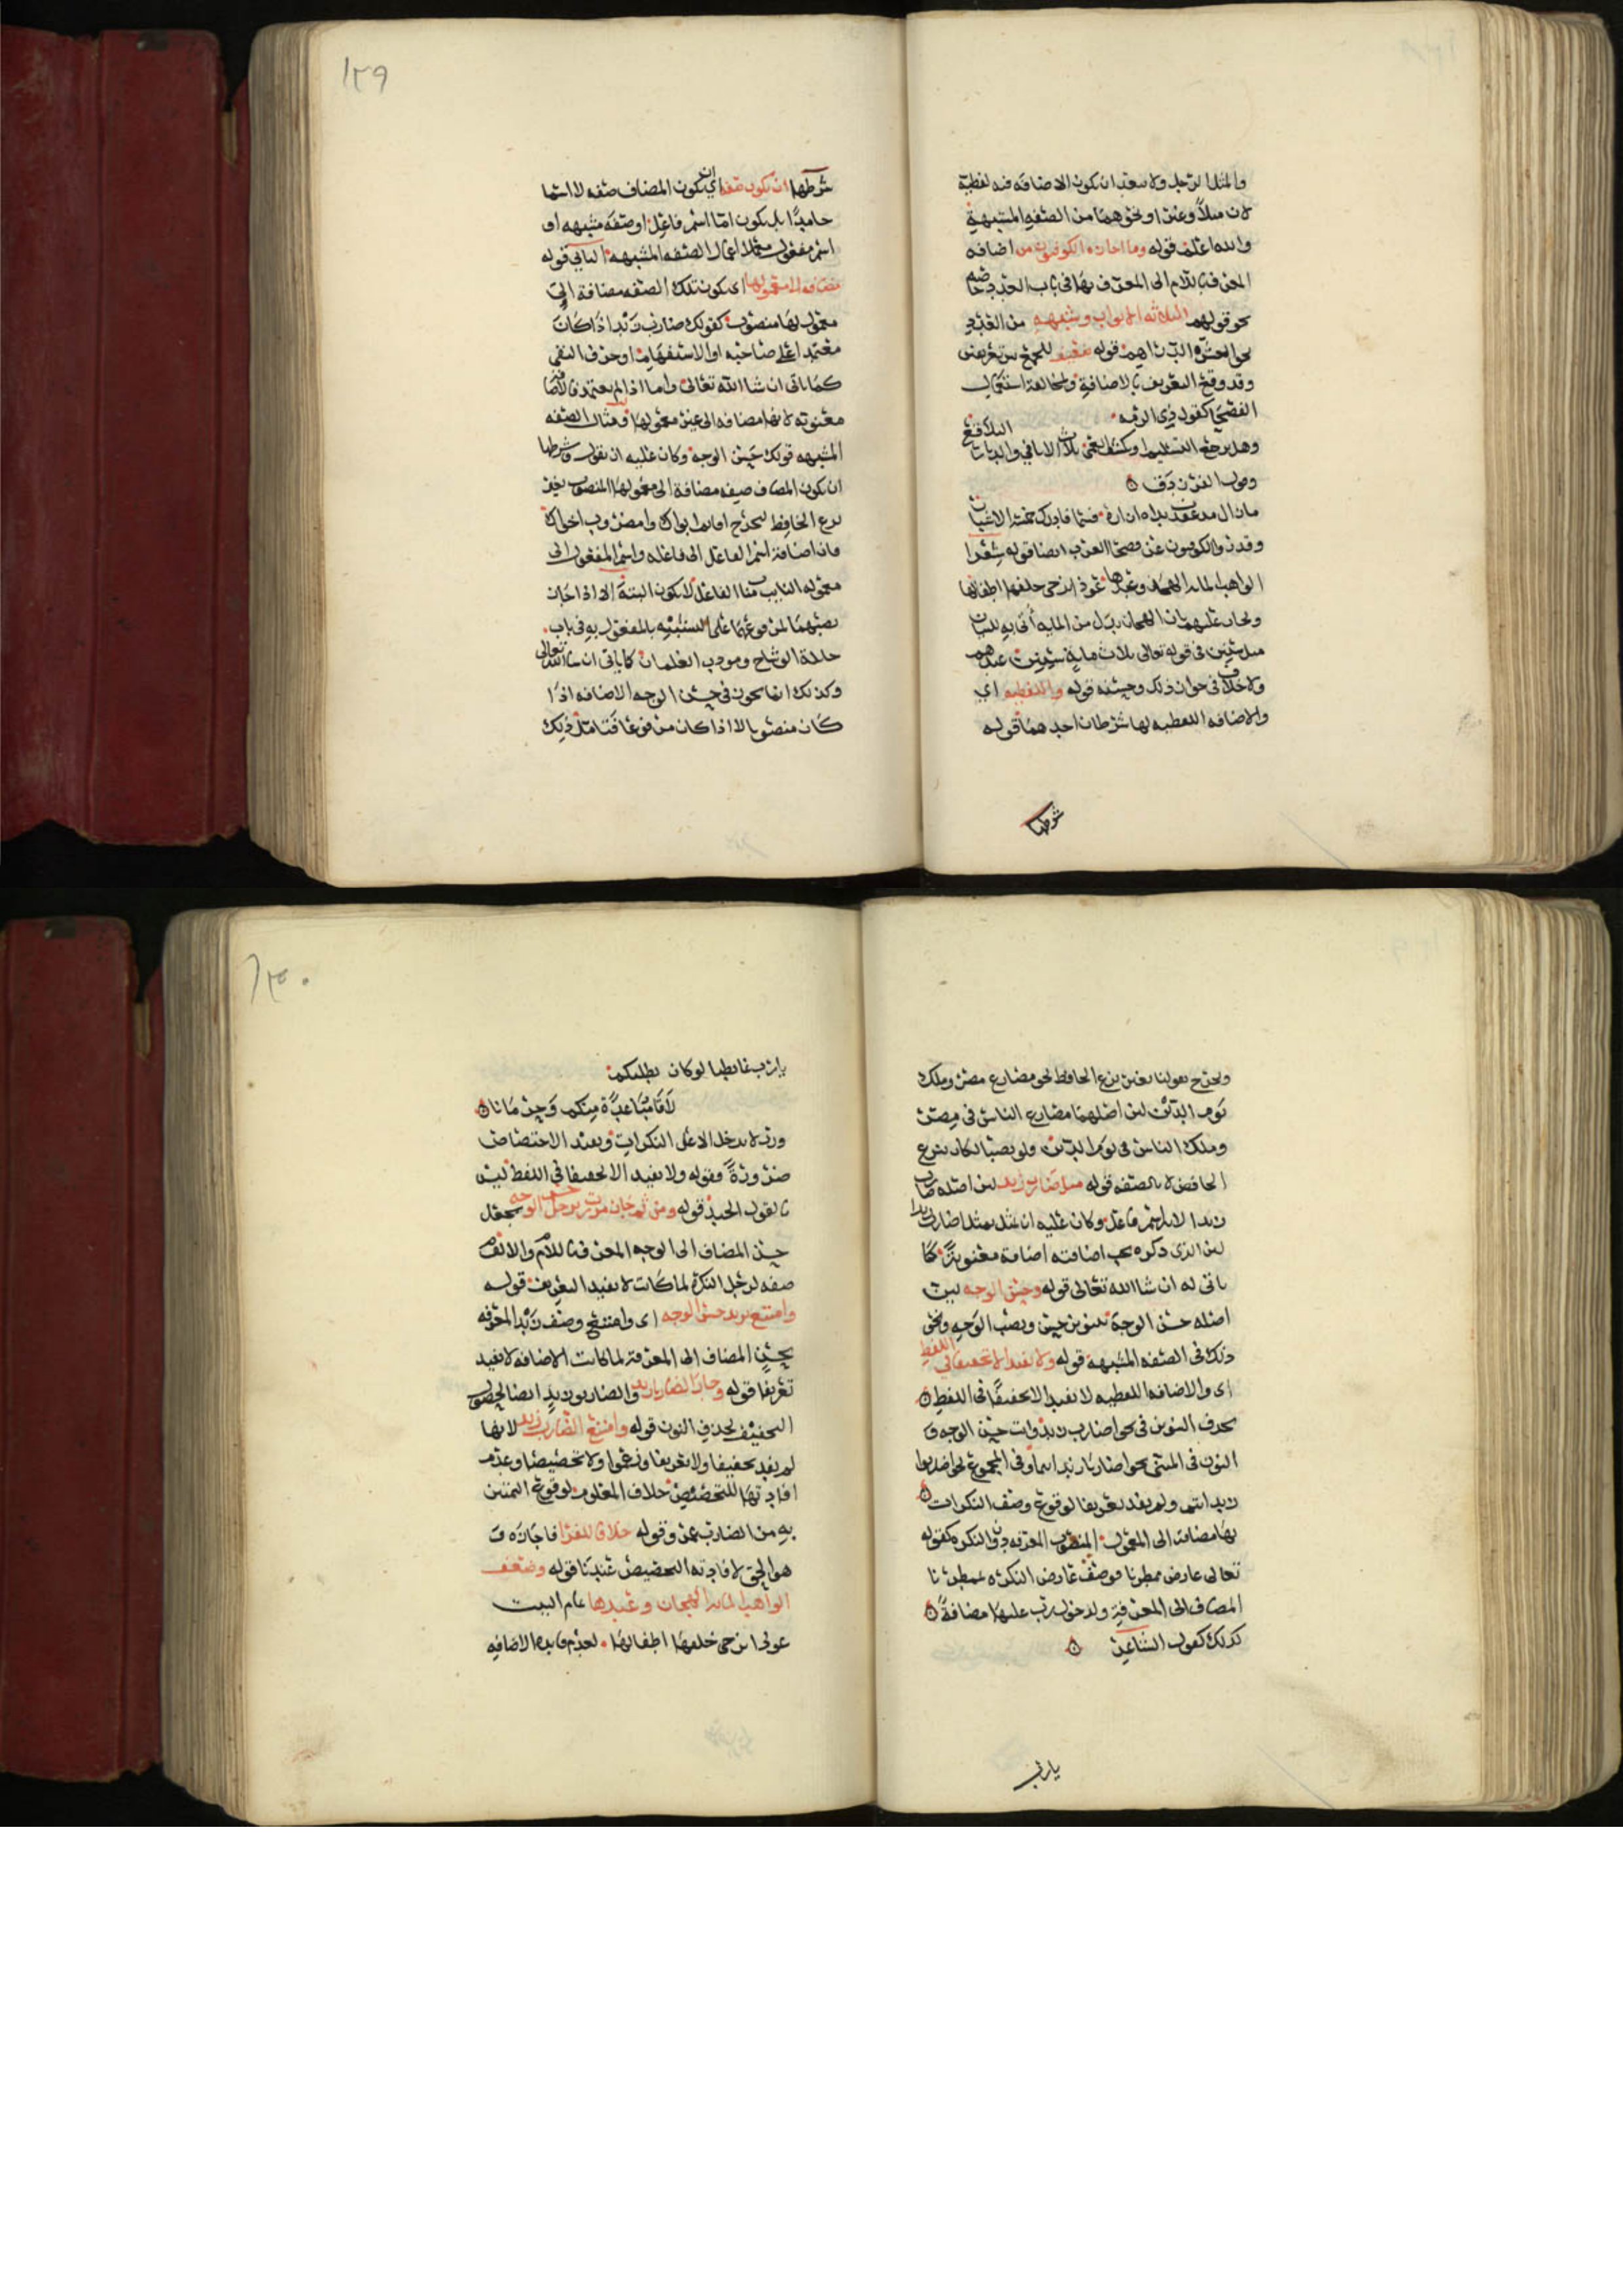 والمثل الرجل ولا يبعد ان تكون الاضافه فيه لفظية
لان مثلاً وغيرا ونحوهما من الصفه المشبهة
والله اعلم قوله وما اجازه الكوفيون من اضافه
المعرف باللام الى المعرف بها في باب العدد خاصه
نحو قولهم الثلاثه الاثواب وشبهه من العدد
نحو الخمسه الدراهم قوله ضعيف للجمع بين تعريفين
وقد وقع التعريف بالاضافة ولمخالفة استعمال
الفصحا كقول ذي الرمه
وهل يرجع التسليم او يكشف العمى ثلاث الاثافي والديار البلاقع
وقول الفرزدق
ما زال مذ عقدت يداه ازاره فسما فادرك خمسة الاشبار
وقد روا الكوفيون عن فصحا العرب ايضا قوله شعرا
الواهب المايه الهجان وعبدها عوذا تزجى خلفها اطفالها
الهجان بدل من المايه أتى به للبيان
مثل سنين في قوله تعالى ثلاث ماية سنين عندهم
ولا خلاف في جواز ذلك وحسنه قوله واللفظيه اي
والاضافه اللفظيه لها شرطان احدهما قوله
شرطها
١٢٩
شرطها ان تكون صفه اي ان يكون المضاف صفه لا اسما
جامدًا بل يكون اما اسم فاعل او صفه مشبهه او
اسم مفعول اعمال الصفه المشبهه الثاني قوله
مضافه الى معمولها اي تكون تلك الصفه مضافة الى
معمول لها منصوب كقولك ضارب زيد اذا كان
معتمدا على صاحبه او الاستفهام او حرف النفي
كما ياتي ان شا الله تعالى واما اذا لم يعتمد فالاضافه
معنويه لانها مضافه الى غير معمولها ومثال الصفه
المشبهه قولك حسن الوجه وكان عليه ان يقول وشرطها
ان يكون المضاف صفه مضافة الى معمولها المنصوب بغير
نزع الخافظ ليخرج اقايم ابواك وامضروب اخواك
فان اضافة اسم الفاعل الى فاعله واسم المفعول الى
معموله النايب مناب الفاعل لا يكون البتة الا اذا جاز
نصبهما المرفوعهما على التشبيه بالمفعول به في باب
جايلة الوشاح ومودب الغلمان كما ياتي ان شا الله تعالى
وكذلك انما يجوز في حسن الوجه الاضافه اذا
كان منصوبا لا اذا كان مرفوعا فتامل ذلك
ويخرج بقولنا بغير نزع الخافظ نحو مضارع مصر وملك
يوم الدين لان اصلهما مضارع الناس في مصر
وملك الناس في يوم الدين ولو نصبا لكان بنزع
الخافض لا بالصفه قوله مثل ضارب زيد لان اصله ضارب
زيدا لانه اسم فاعل وكان عليه ان يمثل بمثل اضارب زيدا
لان الذي ذكره يجب اضافته اضافة معنوية كما
ياتي له ان شا الله تعالى قوله وحسن الوجه لان
اصله حسن الوجه بتنوين حسن ونصب الوجه ونحو
ذلك في الصفه المشبهة قوله ولا تفيد الا تخفيفا في اللفظ
اي والاضافه اللفظيه لا تفيد الا تخفيفًا في اللفظ
بحذف التنوين في نحو اضارب زيد وانت حسن الوجه و
النون في المثنى نحو اضاربا زيد انتما وفي المجموع نحو اضاربوا
زيد انتم ولم تفد تعريفا لوقوع وصف النكرات
بها مضافه الى المعمول المنصوب المعرفه دون النكره كقوله
تعالى عارض ممطرنا فوصف عارض النكره بممطرنا
المضاف الى المعرفه ولدخول رب عليها مضافةً
كذلك كقول الشاعر
يا رب
١٣٠
يا رب غابطنا لو كان يطلبكم
لاقا مباعدة منكم وحرمانا
ورب لا تدخل الا على النكرات ويفيد الاختصاص
ضرورةً وقوله ولا تفيد الا تخفيفا في اللفظ ليس
بالقول الجيد قوله ومن ثم جاز مررت برجل حسن الوجه فجعل
حسن المضاف الى الوجه المعرف باللام والالف
صفه لرجل النكرة لما كانت لا تفيد التعريف قوله
وامتنع بزيد حسن الوجه اي وامتنع وصف زيد المعرفه
بحسن المضاف الى المعرفة لما كانت الاضافه لا تفيد
تعريفا قوله وجاز الضاربا زيد والضاربو زيد ايضا لحصول
التخفيف بحذف النون قوله وامتنع الضارب زيد لانها
لم تفد تخفيفا ولا تعريفا وزعموا ولا تخصيصا وعدم
افادتها للتخصيص خلاف المعلوم لوقوع التمييز
به من الضارب عمرو وقوله خلافا للفرا فاجازه و
هو الحق لافادته التخصيص عندنا قوله وضعف
الواهب المايه الهجان وعبدها تمام البيت
عوذا تزجى خلفها اطفالها لعدم فايده الاضافه